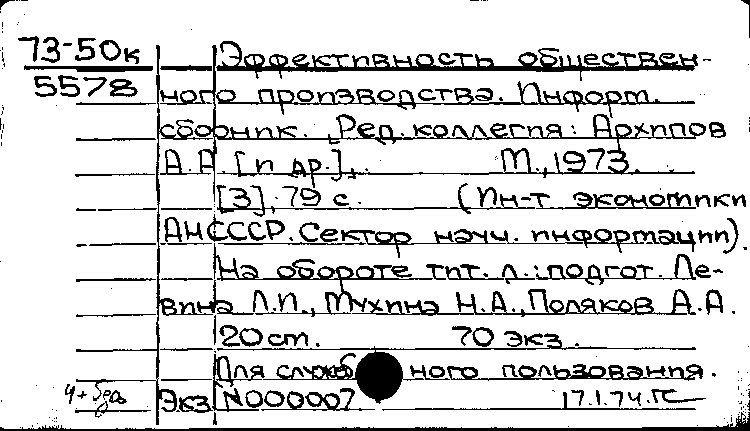 73-50к Эффективность обществен-
5578 ного производства. Информ.
сборник. Ред. коллегия: Архипов
А.А. [и др.], М., 1973.
[3], 79 с. (Ин-т экономики
АН СССР. Сектор науч. информации).
На обороте тит. л.: подгот. Ле-
вина Л.П., Мухина Н.А., Поляков А.А.
20 ст. 70 экз.
Для служебного пользования.
Экз N000007 17.1.74.ГС